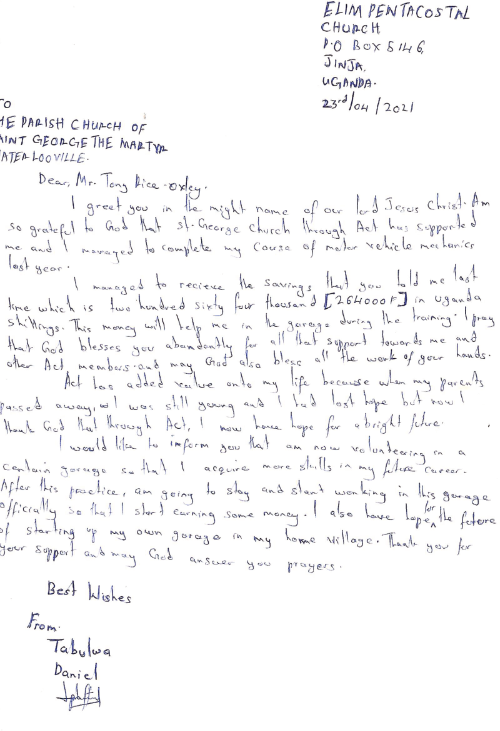 ELIM PENTACOSTAL
CHURCH
P.O BOX 5146,
JINJA.
UGANDA.
23rd/04/2021
TO
HE PARISH CHURCH OF
AINT GEORGE THE MARTYR
WATERLOOVILLE.
Dear, Mr. Tony Rice-oxley.
I greet you in the might name of our lord Jesus Christ. Am
so grateful to God that st. George church through Act has supported
me and I managed to complete my Couse of motor vehicle mechanics
last year.
I managed to recieve the savings that you told me last
time which is two hundred sixty four thousand [264000F] in uganda
shillings. This money will help me in the garage during the training. I pray
that God blesses you abandontly for all that support towards me and
other Act members and may God also bless all the work of your hands.
Act has added value onto my life because when my parents
passed away, I was still young and I had lost hope but now I
thank God that through Act, I now have hope for a bright future.
I would like to inform you that am now volunteering in a
certain garage so that I acquire more skills in my future career.
After this practice, am going to stay and start working in this garage
officially so that I start earning some money. I also have hope for the future
of starting up my own garage in my home village. Thank you for
your support and may God answer you prayers.
Best Wishes
From.
Tabulwa
Daniel